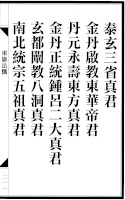 泰玄三省真君
金丹啟教東華帝君
丹元永壽東方真君
金丹正統鍾呂二大真君
玄都闡教八洞真君
南北統宗五祖真君